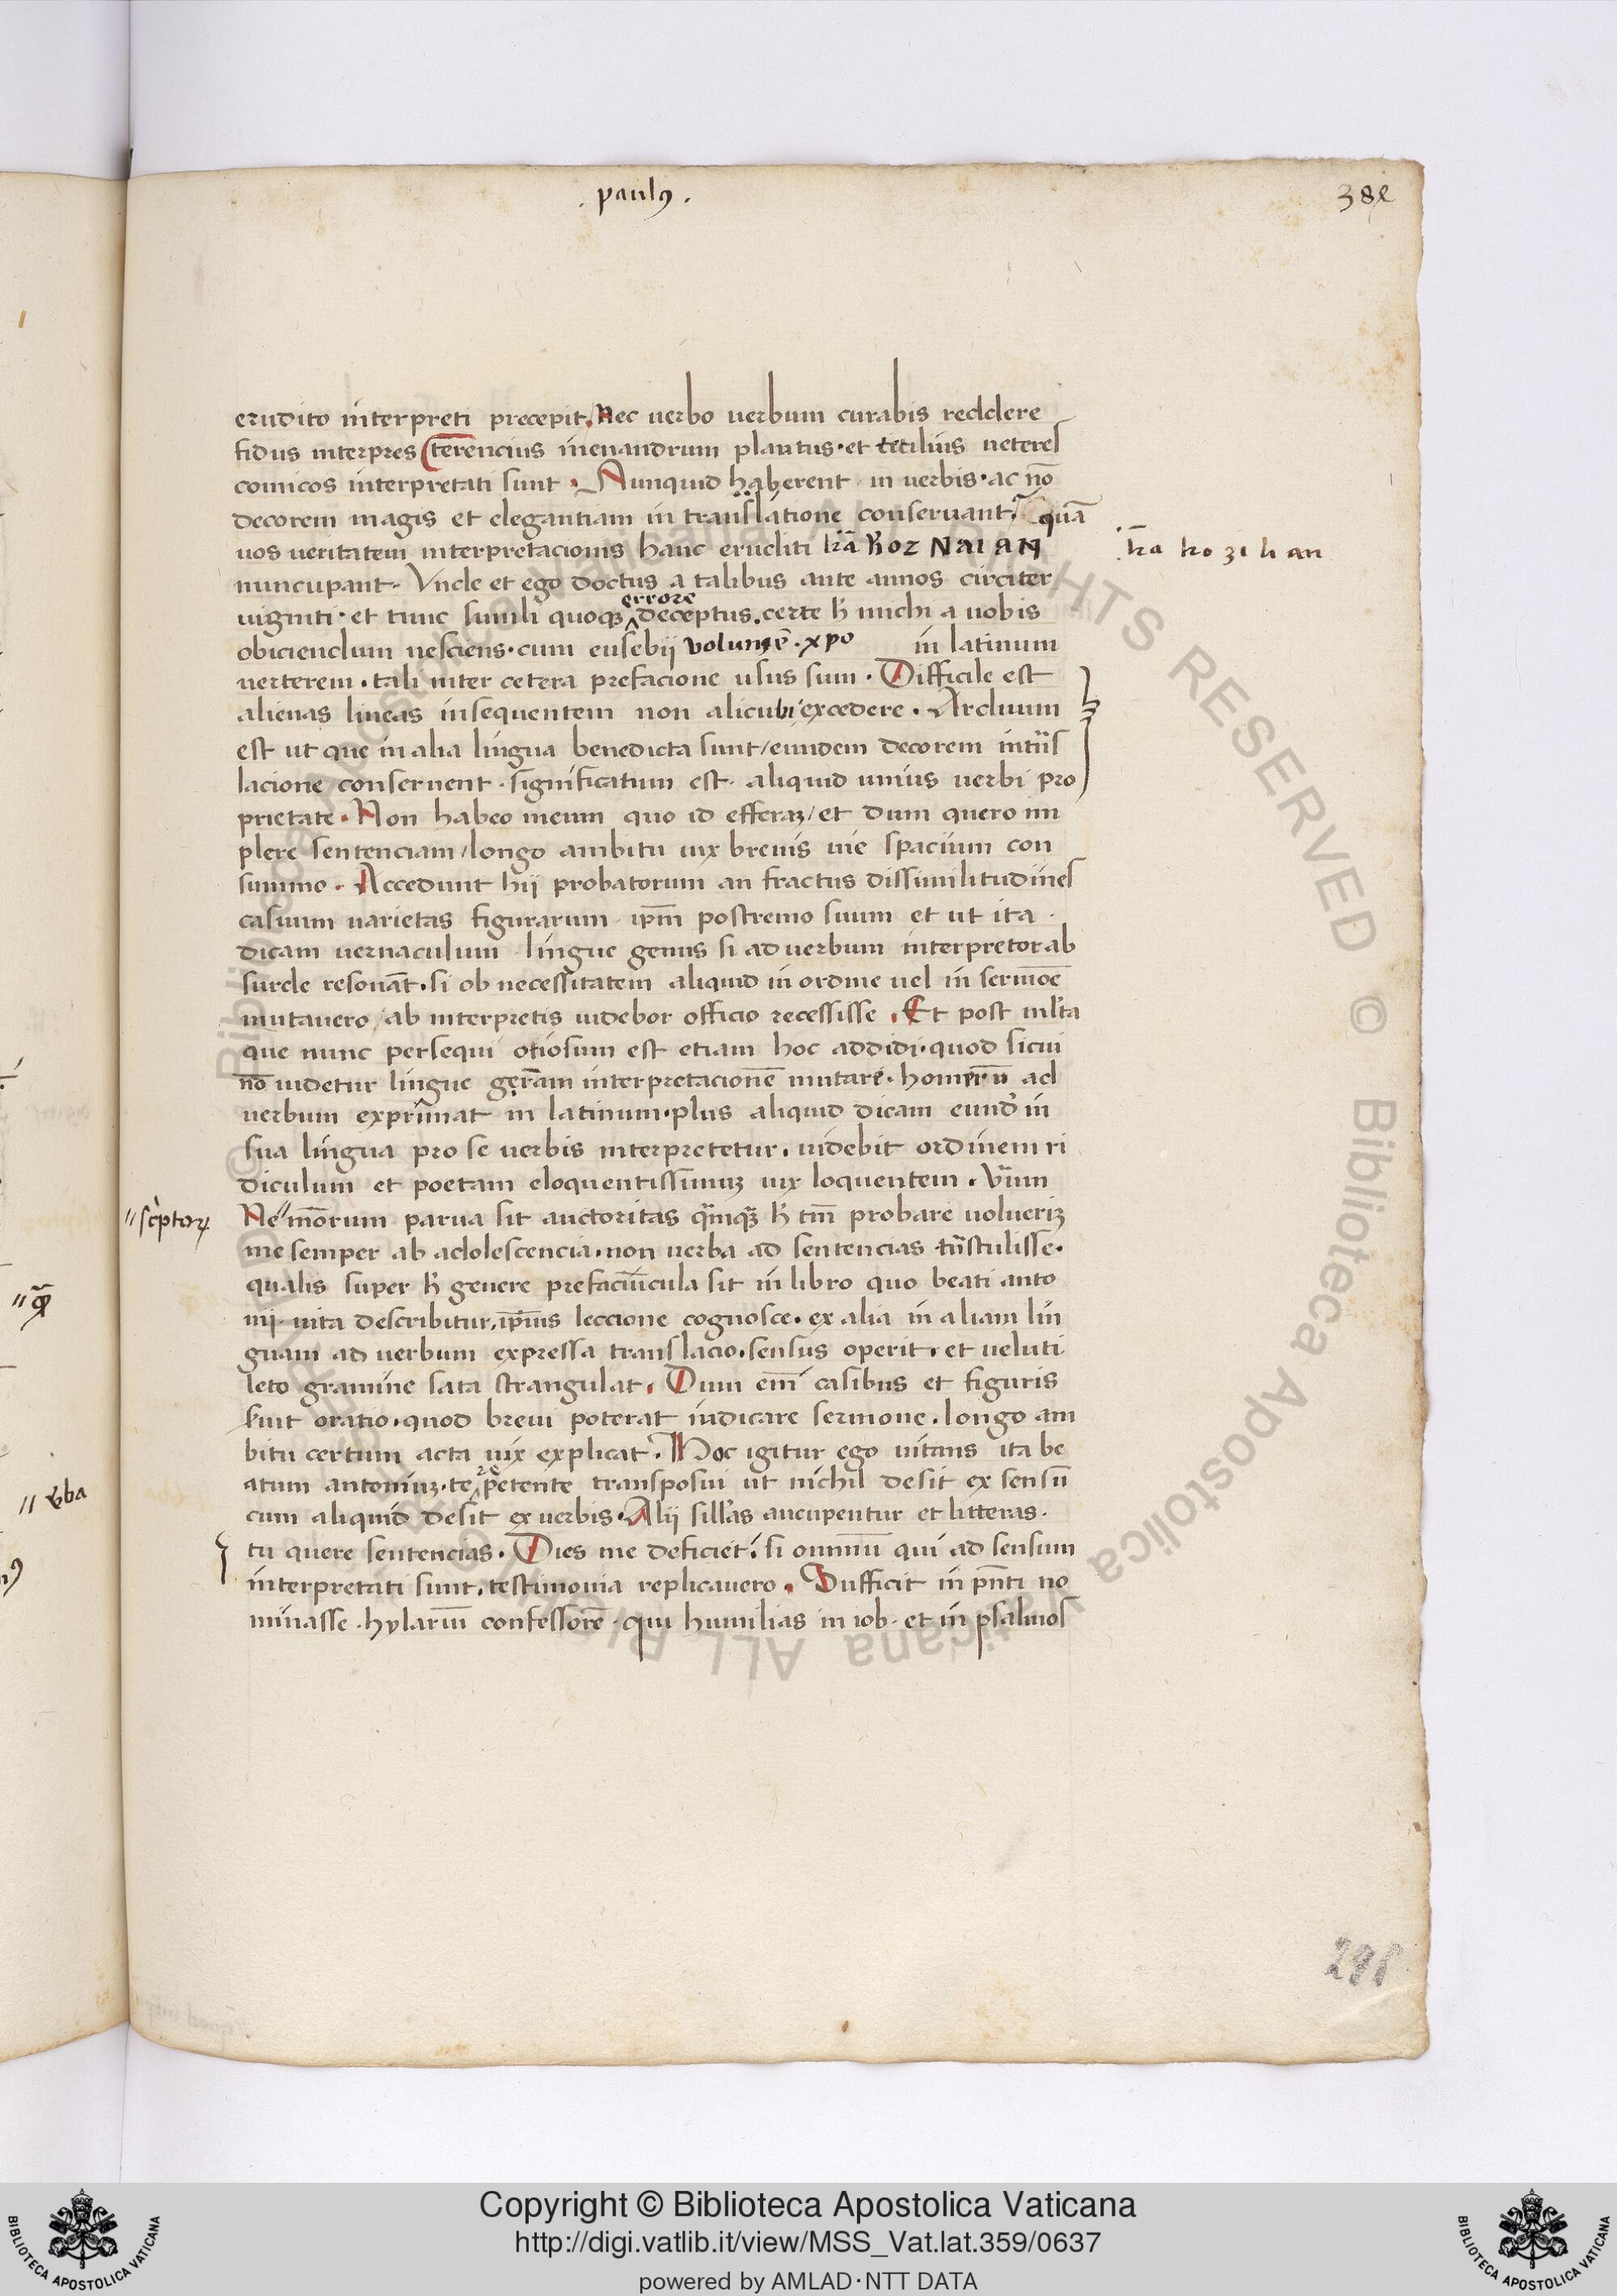 . paulꝯ .
381
erudito interpreti precepit. Nec verbo uerbum curabis reddere
fidus interpres (terencius menandrum plautus· et teciliuis ueteres
comicos interpretati sunt · Nunquid haberent in verbis· ac nō
decorem magis et elegantiam in translatione conseruant· quā
uos ueritatem interpretacionis hanc eruditi kā koz NAIAN
ka ko zi li an
nuncupant· Vnde et ego doctus a talibus ante annos circiter
uiginti· et tunc simili quoqꝫ errore deceptus. certe h̄ michi a uobis
obiciendum nesciens· cum eusebij volumē· xpo in latinum
uerterem· tali inter cetera prefacione usus sum· Difficile est
alienas lineas insequentem non alicubi excedere· Arduum
est ut que in alia lingua benedicta sunt/ eundem decorem in tn̄s
lacione conseruent· significatum est· aliquid unius uerbi pro
prietate· Non habeo meum quo id efferaꝫ/ et dum quero im
plere sentenciam/ longo ambitu uix breuis uie spacium con
summo· Accedunt hij probatorum an fractus dissimilitudines
casuum uarietas figurarum· ip̄m postremo suum et ut ita ·
dicam uernaculum lingue genus si ad uerbum interpretor ab
surde resonāt· si ob necessitatem aliquid in ordine uel in sermoē
mutauero/ ab interpretis uidebor officio recessisse. Et post ml̄ta
que nunc persequi otiosum est etiam hoc addidi· quod si cui
nō uidetur lingue gēram interpretacionē mutare· homerū ad
uerbum exprimat in latinum· plus aliquid dicam eund̄ in
sua lingua pro se uerbis interpretetur. uidebit ordinem ri
diculum et poetam eloquentissimuꝫ uix loquentem. Vr̄um
"sc̄ptoꝝ
Ne" m̄orum parua sit auctoritas qm̄qꝫ h̄ tm̄ probare uolueriꝫ
me semper ab adolescencia· non uerba ad sentencias tn̄stulisse·
qualis super h̄ genere prefaciūcula sit in libro quo beati anto
"qꝫ
nij· uita describitur. ip̄ius leccione cognosce· ex alia in aliam lin
guam ad uerbum expressa translacio· sensus operit· et ueluti
leto gramine sata strangulat. Dum em̄ casibus et figuris
suit oratio· quod breui poterat indicare sermone. longo am
bitu certum acta uix explicat. Hoc igitur ego uitans ita be
atum antoniuꝫ· te petente transposui ut nichil desit ex sensu
"v̄ba
cum aliquid desit ex uerbis· Alij sill̄as aucupentur et litteras·
tu quere sentencias. Dies me deficiet· si omniū qui ad sensum
interpretati sunt. testimonia replicauero. Sufficit in pn̄ti no
minasse· hylariū confessorē· qui humilias in iob· et in psalmos
298
Copyright © Biblioteca Apostolica Vaticana
http://digi.vatlib.it/view/MSS_Vat.lat.359/0637
powered by AMLAD·NTT DATA
BIBLIOTECA APOSTOLICA VATICANA
BIBLIOTECA APOSTOLICA VATICANA